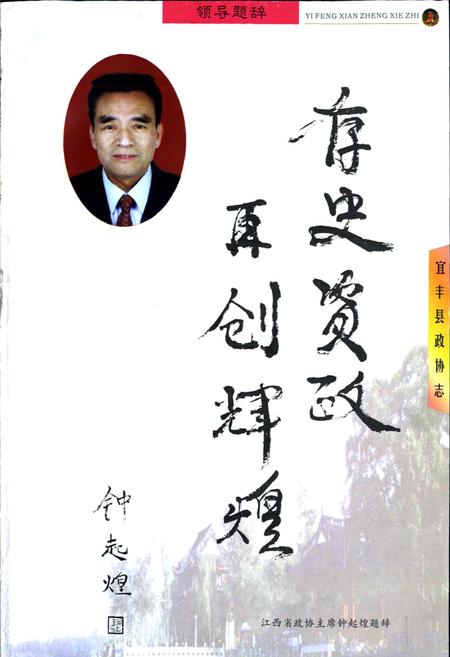 领导题辞
YI FENG XIAN ZHENG XIE ZHI
存史资政
再创辉煌
宜丰县政协志
钟起煌
江西省政协主席钟起煌题辞